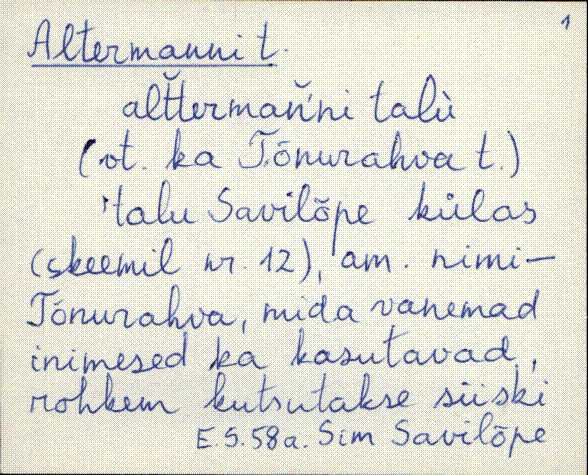 1
Altermanni t.
alt̆termañ'ni talù
(vt. ka Tõnurahva t.)
talu Savilõpe külas
(skeemil nr. 12), am. nimi-
Tõnurahva, mida vanemad
inimesed ka kasutavad,
rohkem kutsutakse siiski
E.S. 58 a. Sim Savilõpe